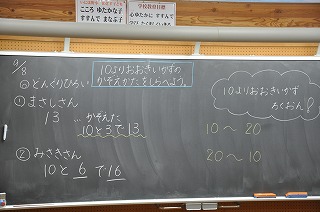 こころ ゆたかな子
すすんで まなぶ子
学校教育目標
心ゆたかに すすんで
9/8
10よりおおきいかずの
かぞえかたをしらべよう。
◎どんぐりひろい
① まさしさん
13 … かぞえた
10と3で13
② みさきさん
10と 6 で16
10よりおおきいかず
わくおん?
10～20
20～10